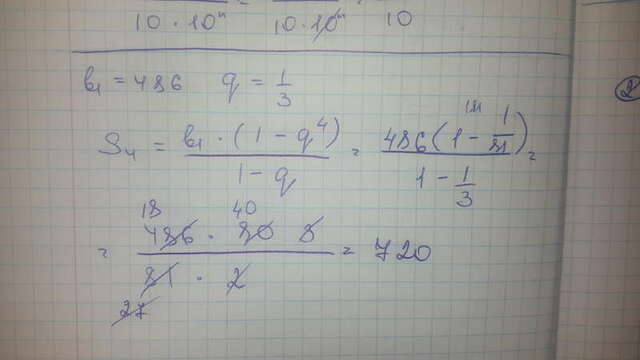 10 · 10ⁿ 10 · 10ⁿ 10
b₁ = 486 q = 1/3
S₄ = b₁ · (1 - q⁴) / 1 - q = 486 (1 - 1/81) / 1 - 1/3 =
18 40
= 486 · 80 3 / 81 · 2 = 720
27
2